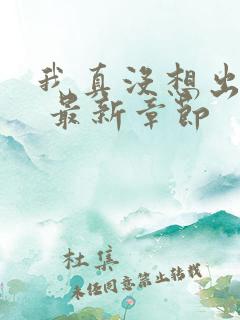 我真没想出
最新章节
杜集
未经同意禁止转载